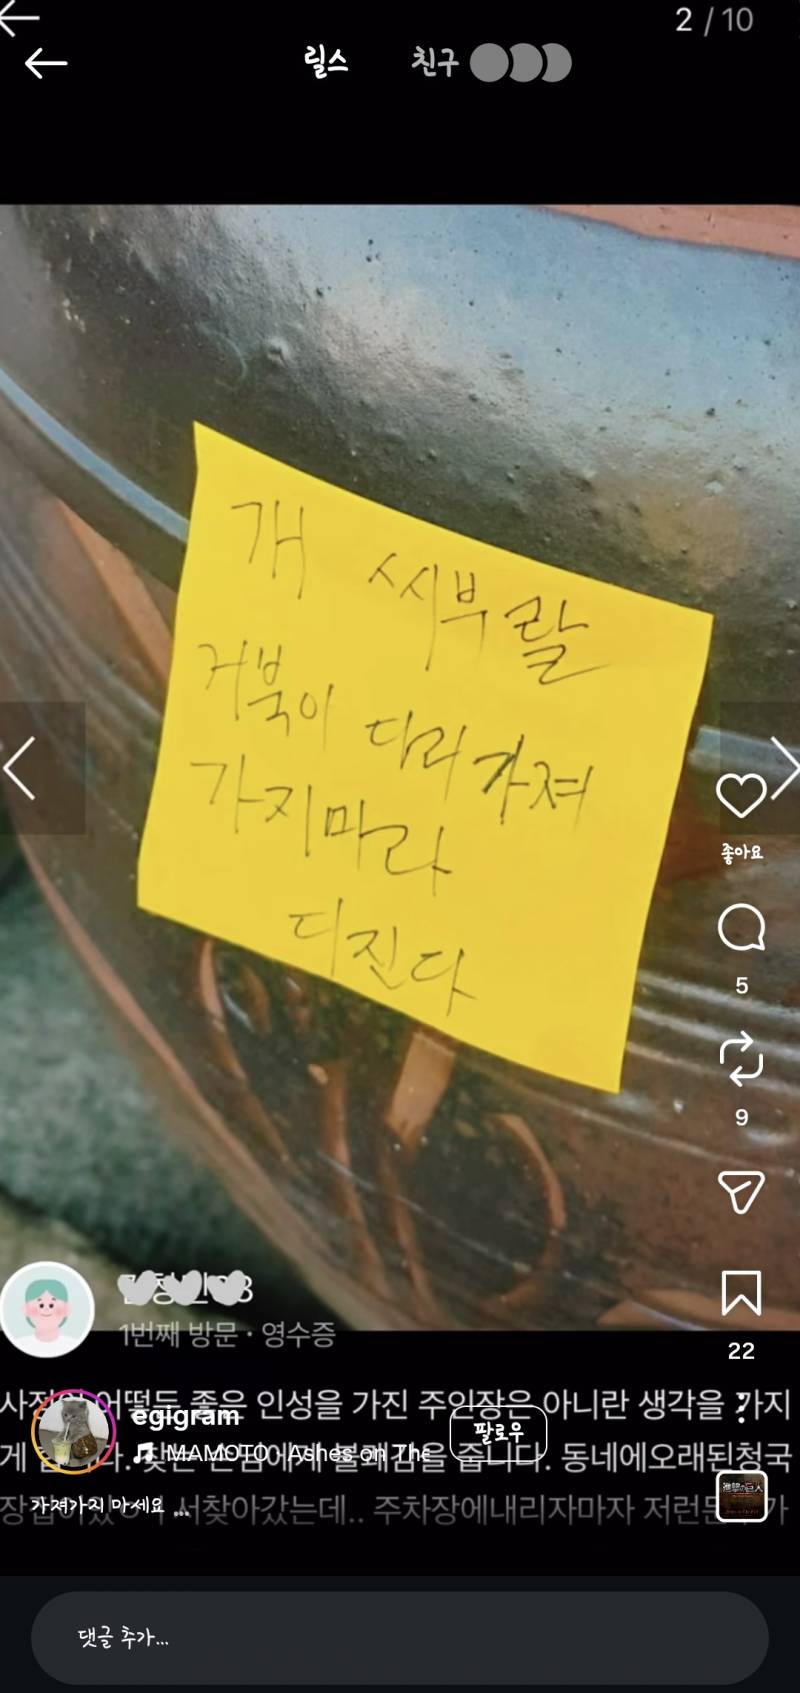 2 / 10
릴스 친구
개 씨부랄
거북이 다리 가져
가지마라
디진다
좋아요
5
9
22
1번째 방문 · 영수증
사정이 어떻든 좋은 인성을 가진 주인장은 아니란 생각을 가지
egigram
팔로우
MAMOTO · Ashes on The
불쾌감을 줍니다. 동네에오래된청국
가져가지 마세요 ...
서찾아갔는데.. 주차장에내리자마자
댓글 추가...